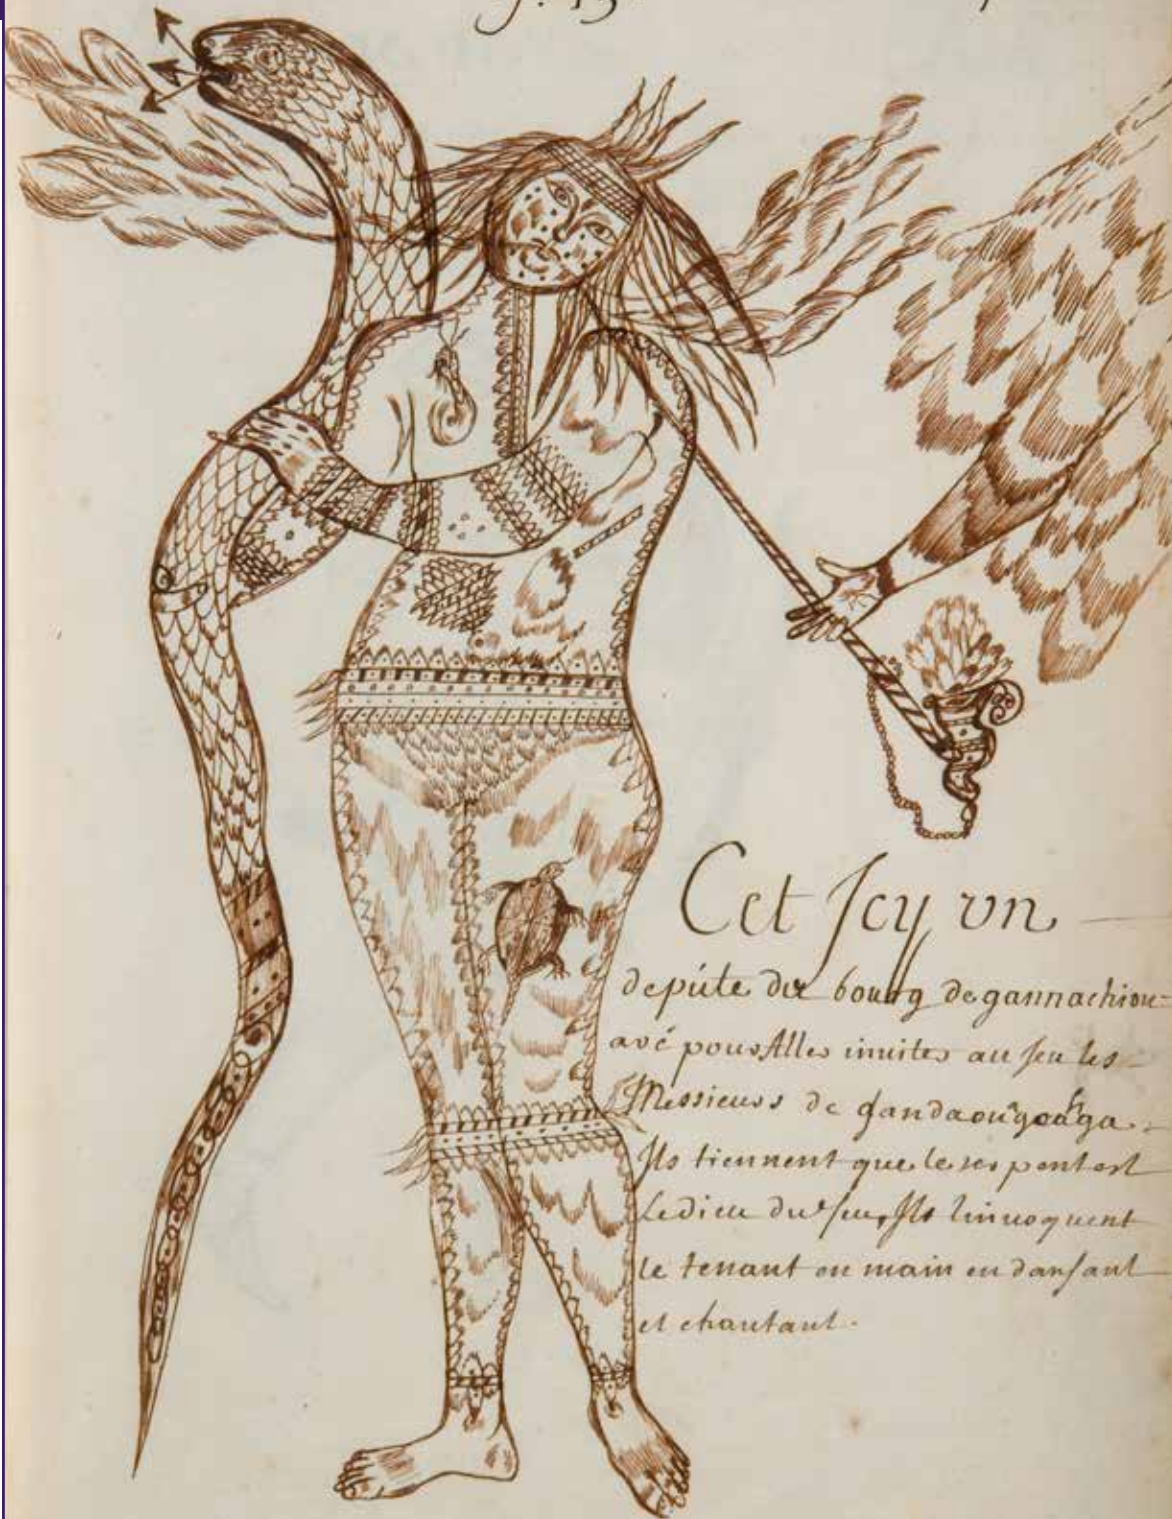 Cet Icy vn
depúte du bourg de gannachiou=
avé pour Aller inuiter au feu les
Messieurs de gandaouagoahga.
Ils tiennent que le serpent est
Le dieu du feu, Ils linuoquent
le tenant en main en dansant
et chantant.